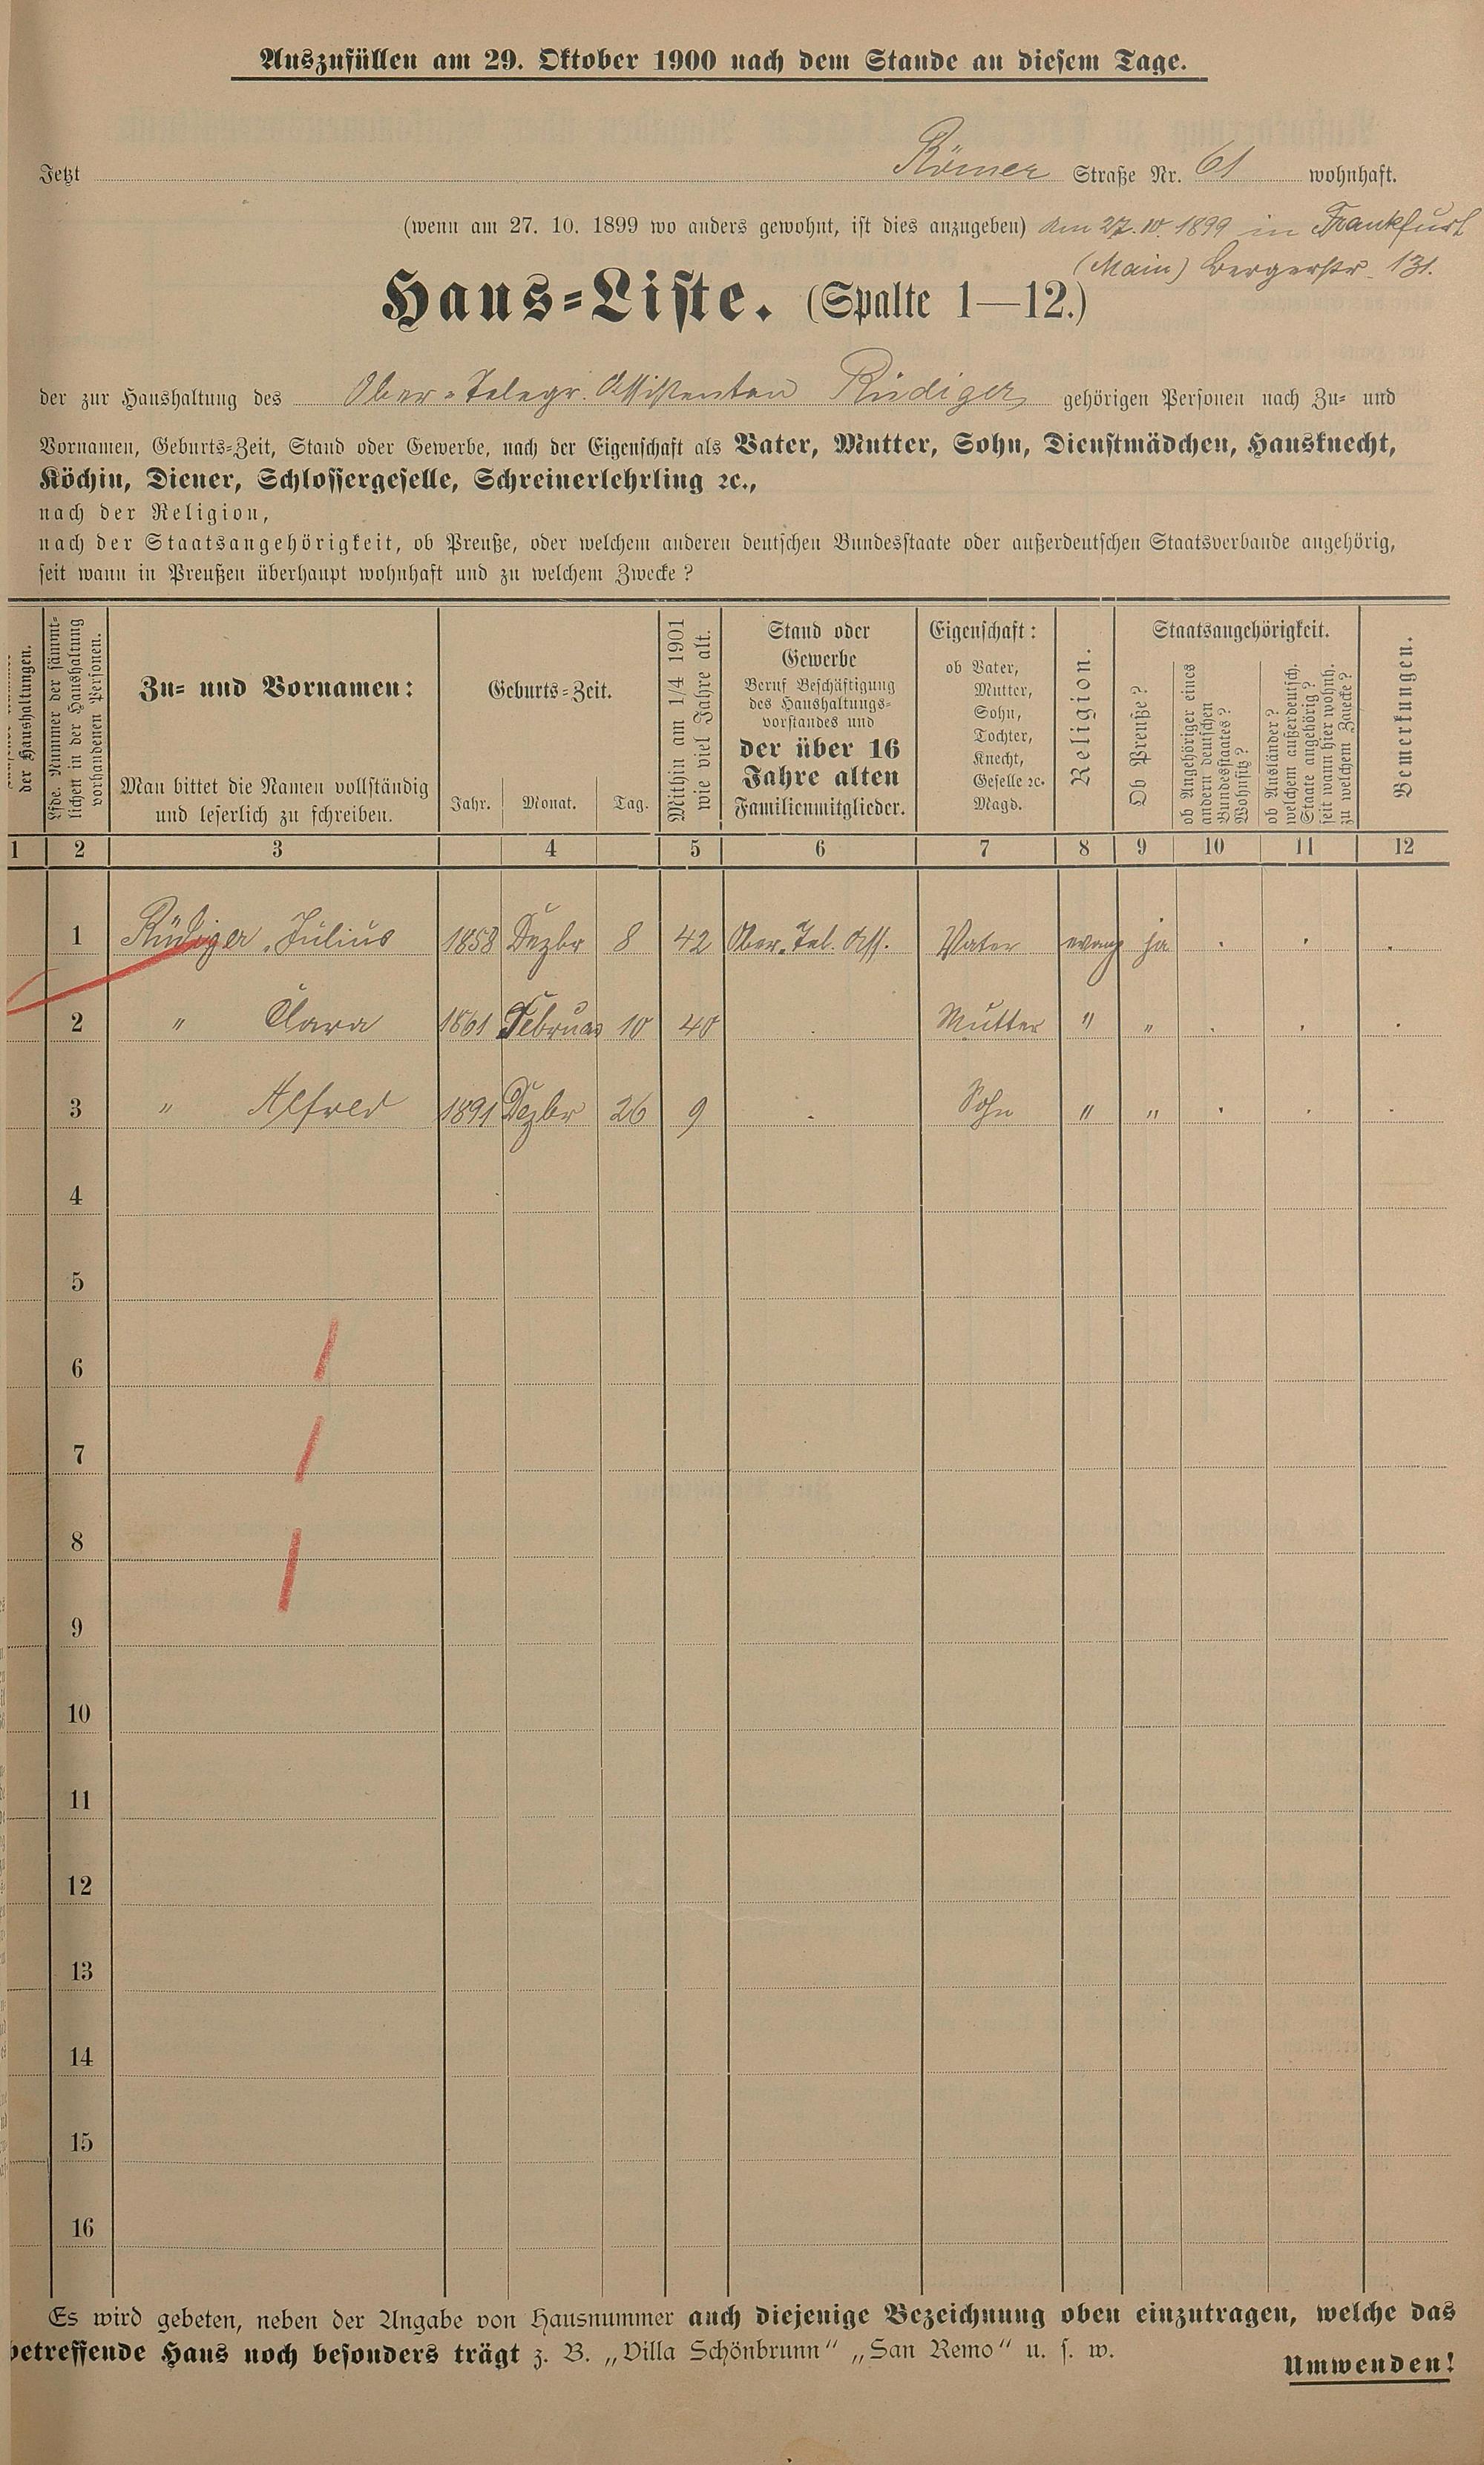 Auszufüllen am 29. Oktober 1900 nach dem Stande an diesem Tage.
Jetzt Römer Straße Nr. 61 wohnhaft.
(wenn am 27. 10. 1899 wo anders gewohnt, ist dies anzugeben) Am 27. 10. 1899 in Frankfurt
(Main) Bergerstr. 131.
Haus-Liste. (Spalte 1—12.)
der zur Haushaltung des Ober-Telegr. Assistenten Rüdiger gehörigen Personen nach Zu- und
Vornamen, Geburts-Zeit, Stand oder Gewerbe, nach der Eigenschaft als Vater, Mutter, Sohn, Dienstmädchen, Hausknecht,
Köchin, Diener, Schlossergeselle, Schreinerlehrling ꝛc.,
nach der Religion,
nach der Staatsangehörigkeit, ob Preuße, oder welchem anderen deutschen Bundesstaate oder außerdeutschen Staatsverbande angehörig,
seit wann in Preußen überhaupt wohnhaft und zu welchem Zwecke?
der Haushaltungen.
Lfde. Nummer der sämmt-
lichen in der Haushaltung
vorhandenen Personen.
Zu- und Vornamen:
Man bittet die Namen vollständig
und leserlich zu schreiben.
Geburts-Zeit.
Jahr. Monat. Tag.
Mithin am 1/4 1901
wie viel Jahre alt.
Stand oder
Gewerbe
Beruf Beschäftigung
des Haushaltungs-
vorstandes und
der über 16
Jahre alten
Familienmitglieder.
Eigenschaft:
ob Vater,
Mutter,
Sohn,
Tochter,
Knecht,
Geselle ꝛc.
Magd.
Religion.
Staatsangehörigkeit.
Ob Preuße?
ob Angehöriger eines
andern deutschen
Bundesstaates?
Wohnsitz?
ob Ausländer?
welchem außerdeutsch.
Staate angehörig?
seit wann hier wohnh.
zu welchem Zwecke?
Bemerkungen.
1 2 3 4 5 6 7 8 9 10 11 12
1 Rüdiger, Julius 1858 Dezbr 8 42 Ober-Tel. Ass. Vater evang ja . . .
2 " Clara 1861 Februar 10 40 . Mutter " " . . .
3 " Alfred 1891 Dezbr 26 9 . Sohn " " . . .
4
5
6
7
8
9
10
11
12
13
14
15
16
Es wird gebeten, neben der Angabe von Hausnummer auch diejenige Bezeichnung oben einzutragen, welche das
betreffende Haus noch besonders trägt z. B. „Villa Schönbrunn" „San Remo" u. s. w.
Umwenden!